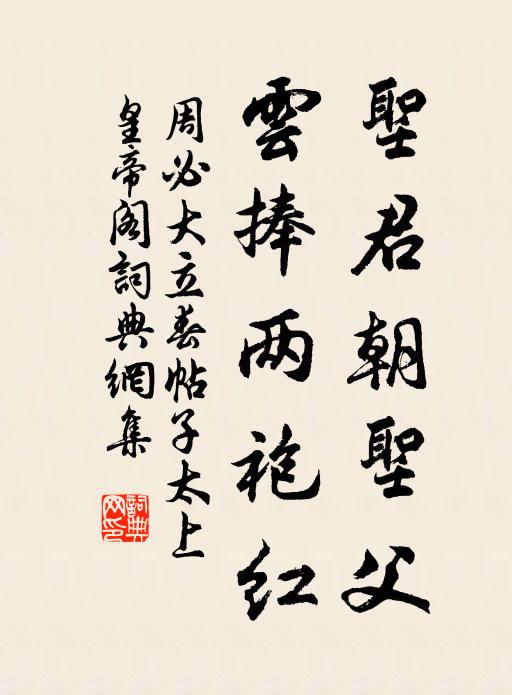 聖君朝聖父
雲捧两袍紅
周必大立春帖子太上
皇帝阁詞典網集
詞典网印